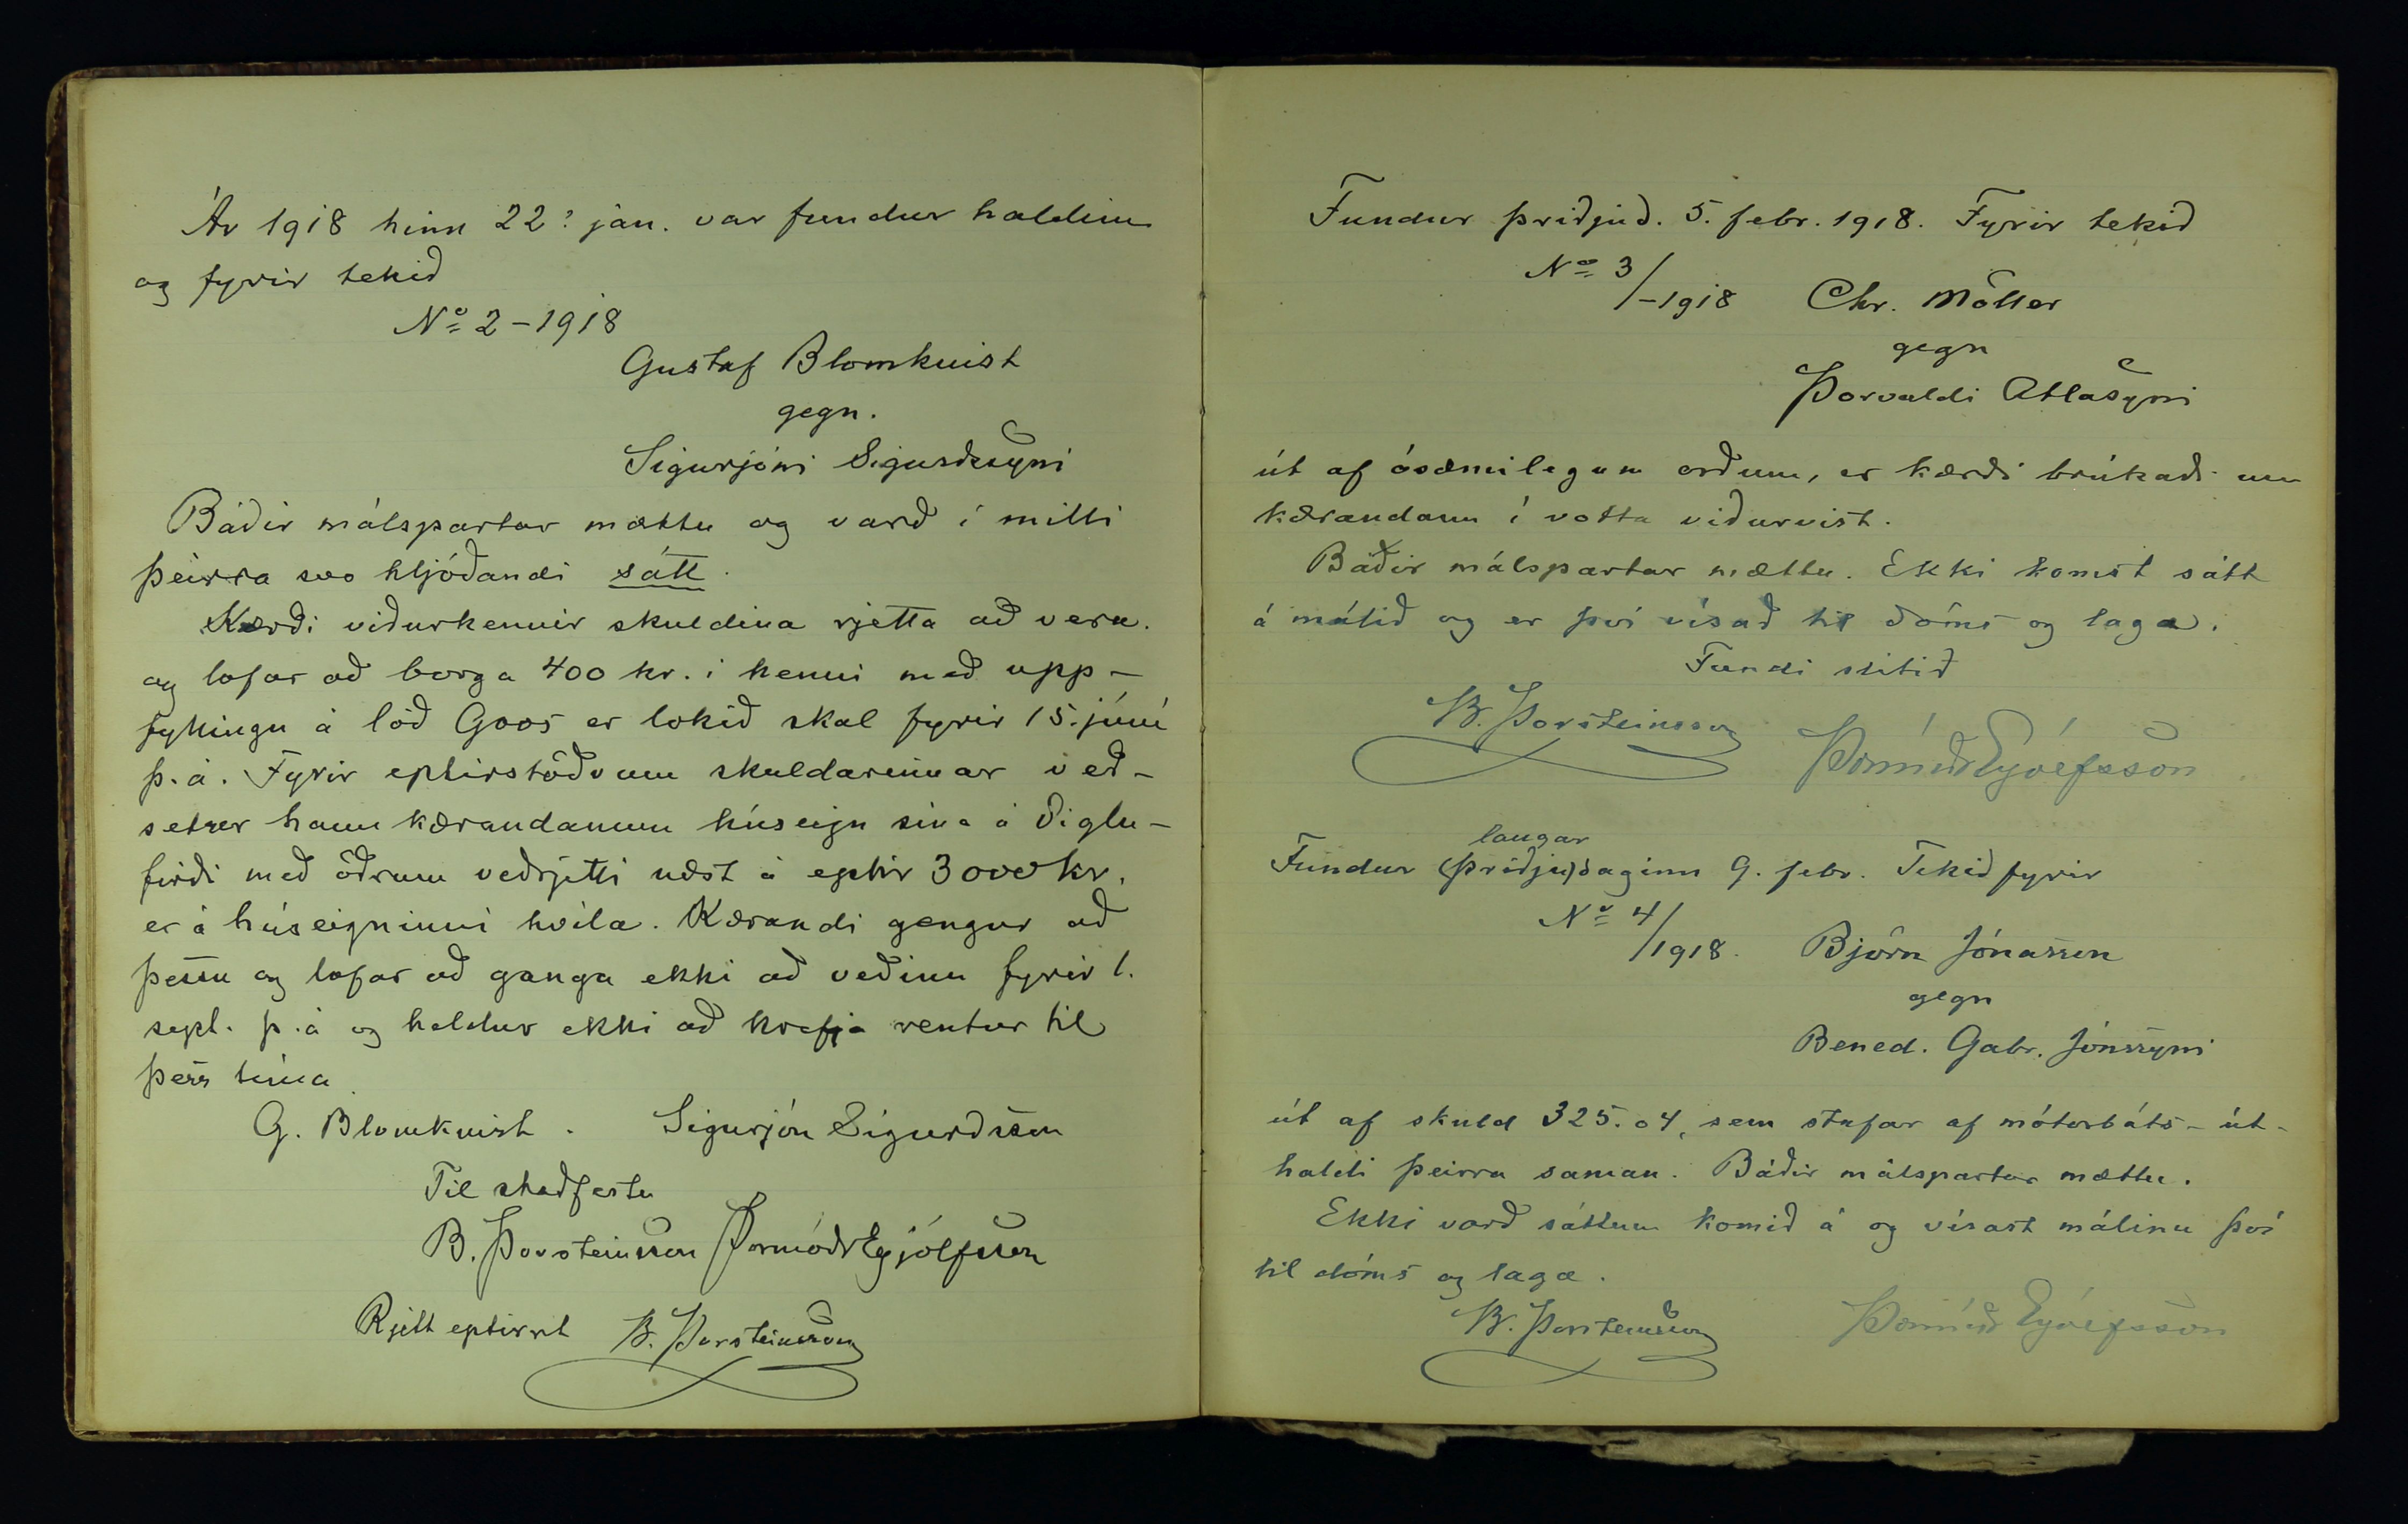 Ár 1918 hinn 22. jan. var fundur haldinn
og fyrir tekið
No 2 - 1918
Gustaf Blomkvist
gegn.
Sigurjóni Sigurdssyni
Báðir málspartar mættu og varð í milli
þeirra svo hljóðandi sátt.
Kærði viðurkennir skuldina rjetta að vera.
og lofar að borga 400 kr. í henni með upp-
fyllingu á lóð Goos er lokið skal fyrir 15. júní
þ.á. Fyrir eptirstöðvum skuldarinnar veð-
setrer hann kærandanum húseign sína á Siglu-
firði með öðrum veðrjetti næst á eptir 3000 kr.
er á húseigninni hvíla. Kærandi gengur að
þessu og lofar að ganga ekki að veðinu fyrir 1.
sept. þ.á og heldur ekki að krefja rentur til
þess tíma
G. Blomkvist. Sigurjón Sigurdsson
Til staðfestu
B. Þorsteinsson Þormóðr Eyjólfsson
Rjett eptirrit B. Þorsteinsson
Fundur þriðjud. 5. febr. 1918. Fyrir tekið
No 3/-1918 Chr. Möller
gegn
Þorvaldi Atlasyni
út af ósæmilegum orðum, er kærði brúkaði um
kærandann í votta viðurvist.
Báðir málspartar mættu. Ekki komst sátt
á málið og er því vísað til dóms og laga.
Fundi slitið
B. Þorsteinsson Þormóðr Eyjólfsson
laugar
Fundur (þriðju)daginn 9. febr. Tekið fyrir
No 4/1918. Björn Jónasson
gegn
Bened. Gabr. Jónssyni
út af skuld 325.04, sem stafar af mótorbáts-út-
haldi þeirra saman. Báðir málspartar mættu.
Ekki varð sáttum komið á og vísast málinu því
til dóms og laga.
B. Þorsteinsson Þormóðr Eyjólfsson